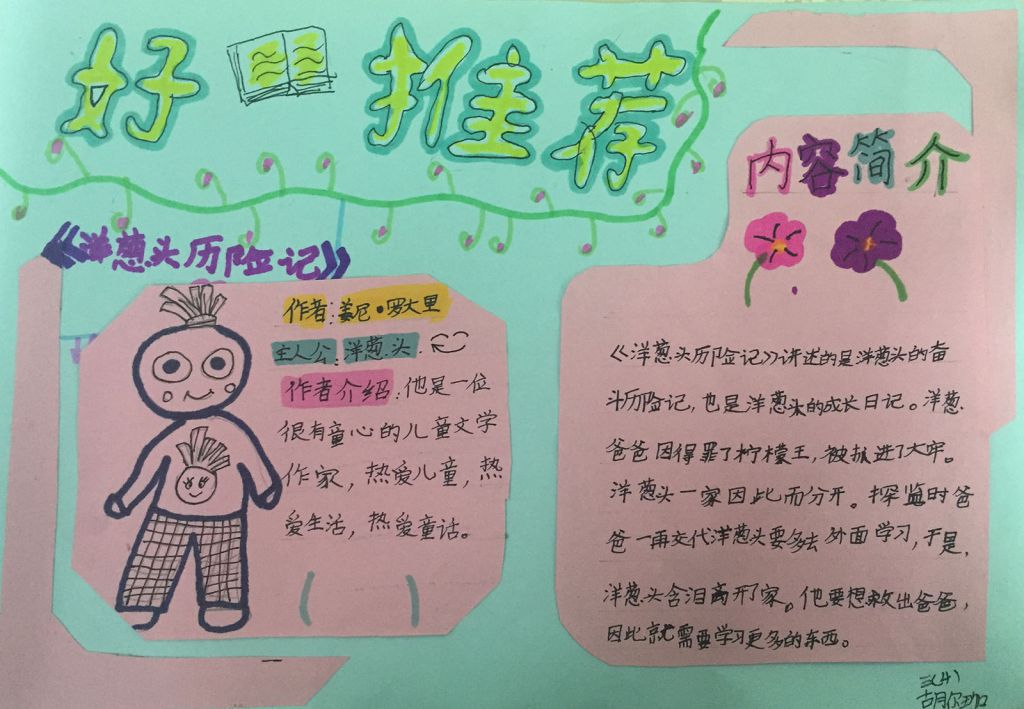 好 推荐
《洋葱头历险记》
作者:姜尼•罗大里
主人公:洋葱头.
作者介绍:他是一位
很有童心的儿童文学
作家，热爱儿童，热
爱生活，热爱童话。
内容简介
《洋葱头历险记》讲述的是洋葱头的奋
斗历险记，也是洋葱头的成长日记。洋葱
爸爸因得罪了柠檬王，被抓进了大牢。
洋葱头一家因此而分开。探监时爸
爸一再交代洋葱头要多去外面学习，于是，
洋葱头含泪离开了家。他要想救出爸爸，
因此就需要学习更多的东西。
三(4)
胡尔珈